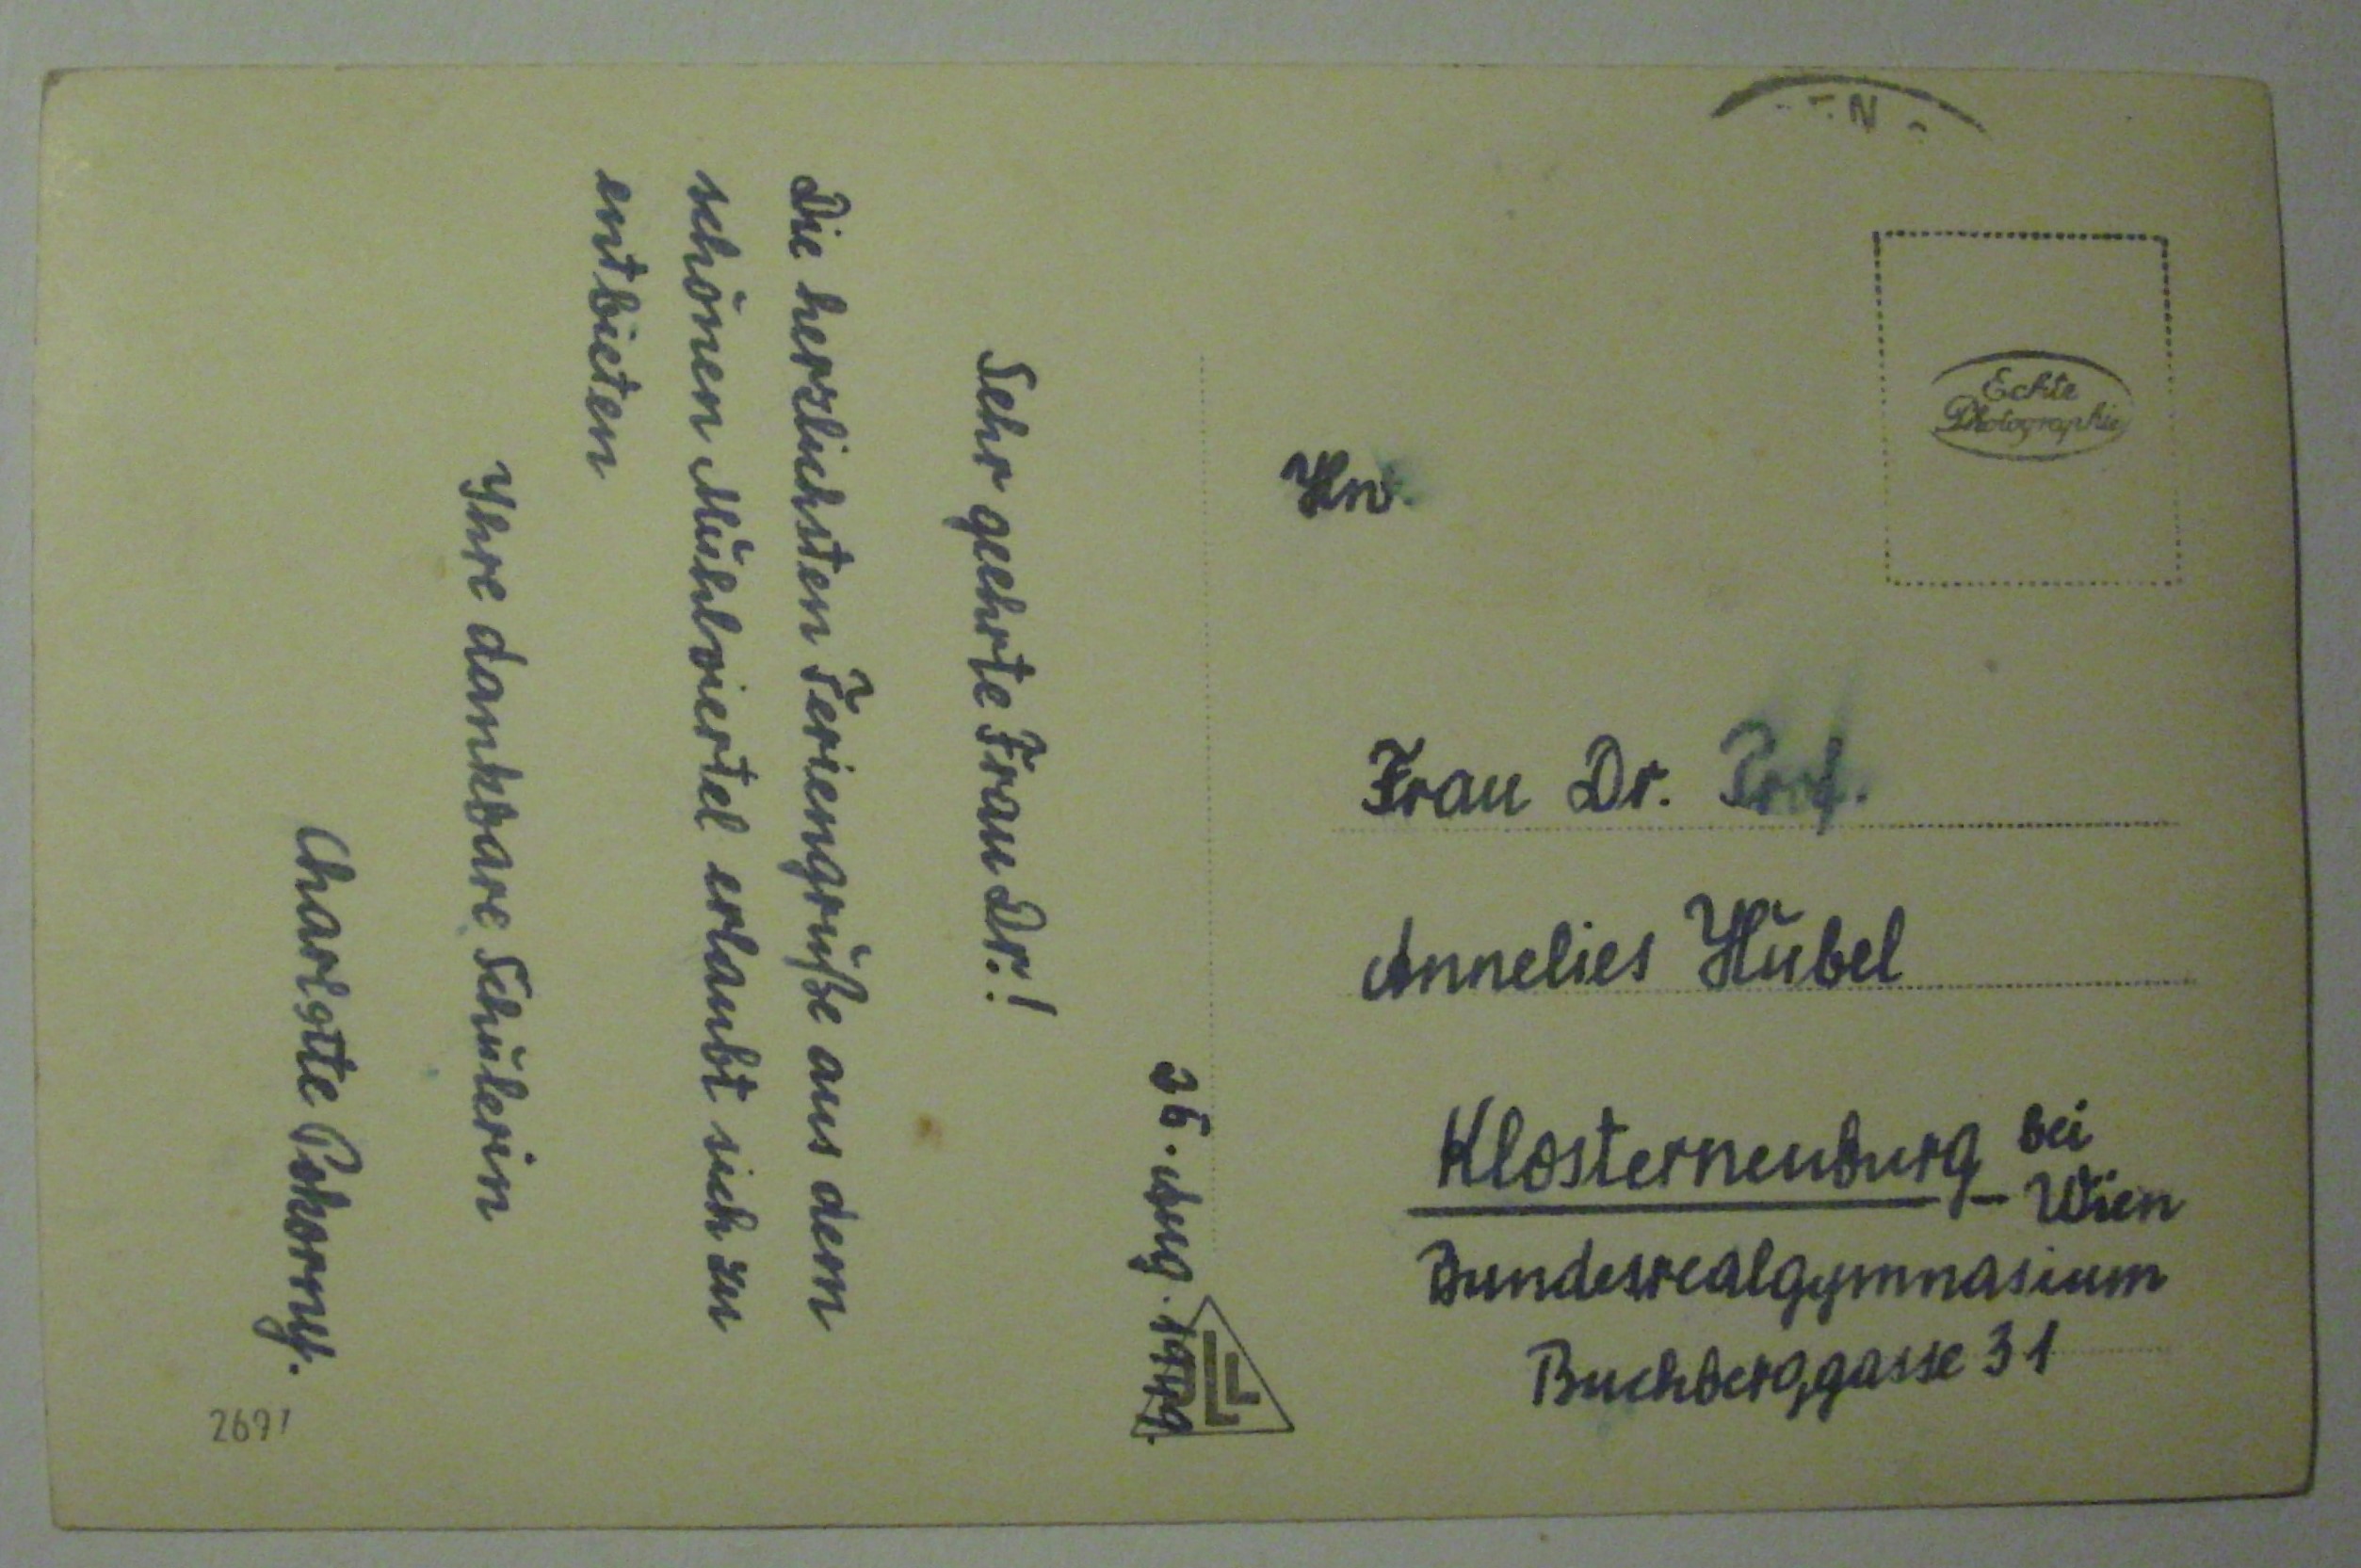 26. Aug. 1949.
Sehr geehrte Frau Dr.!
Die herzlichsten Feriengrüße aus dem
schönen Mühlviertel erlaubt sich zu
entbieten
Ihre dankbare Schülerin
Charlotte Pokorny.
2691
Echte
Photographie
Frau Dr. Prof.
Annelies Hübel
Klosterneuburg bei
Wien
Bundesrealgymnasium
Buchberggasse 31